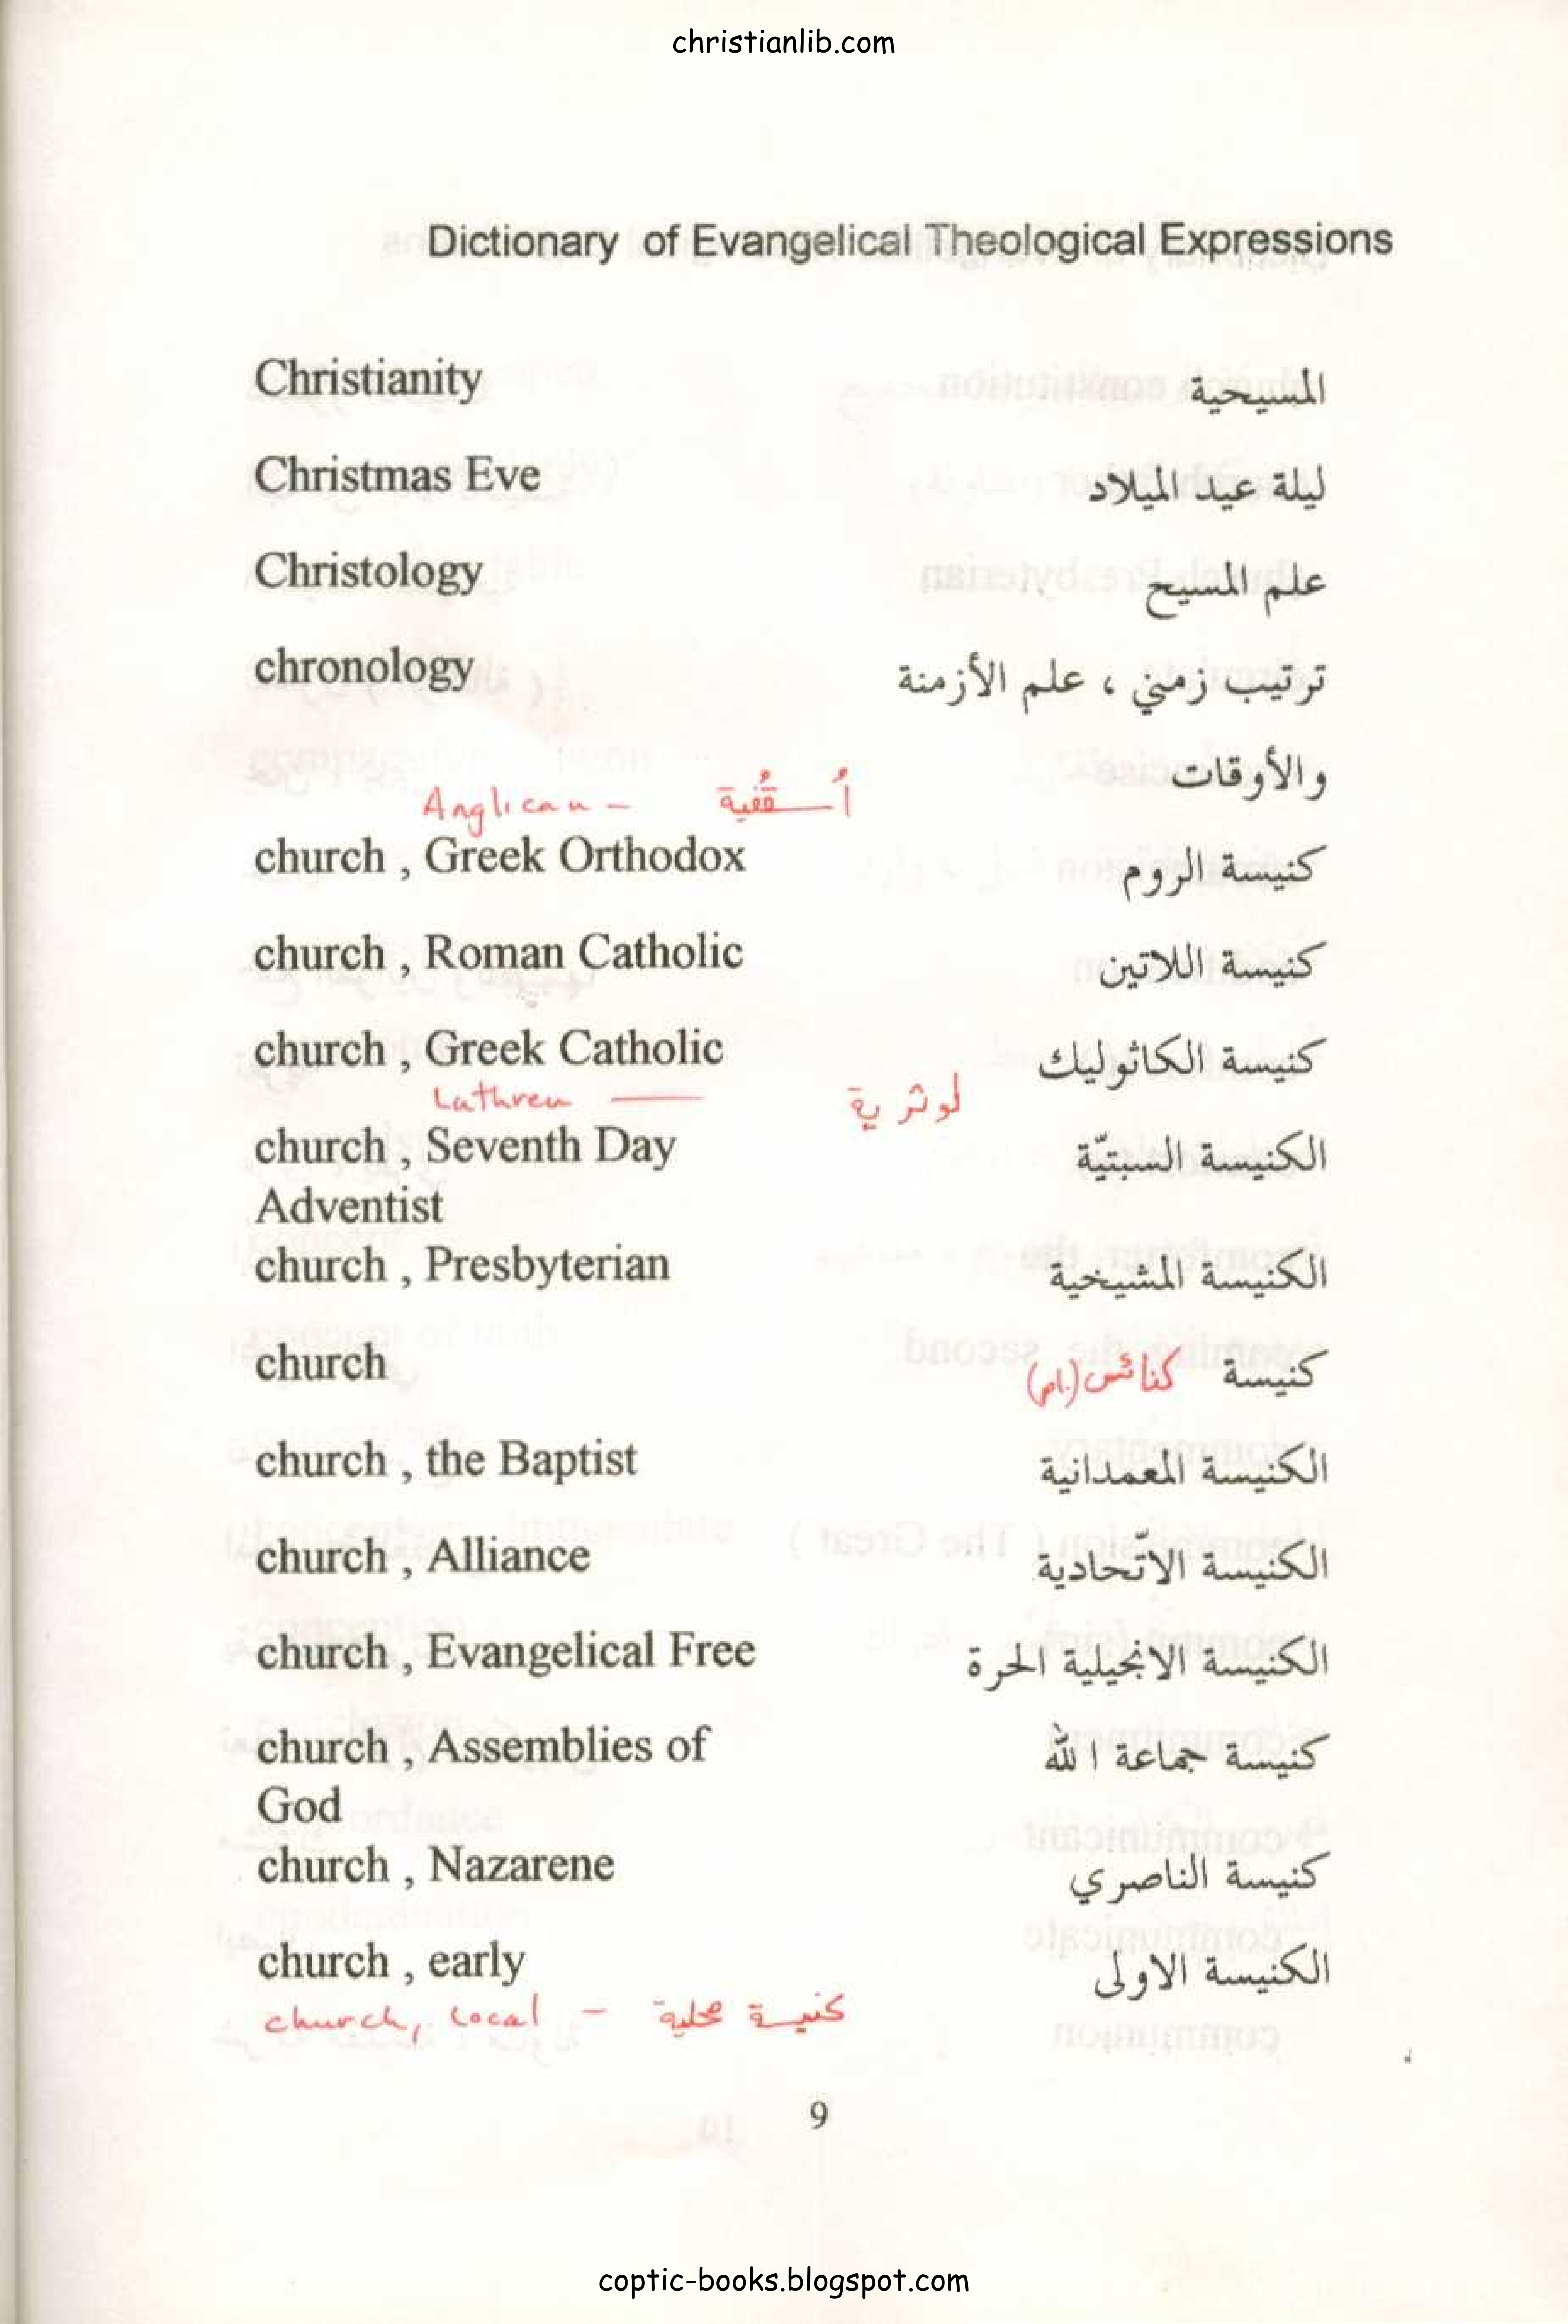 christianlib.com
Dictionary of Evangelical Theological Expressions
Christianity المسيحية
Christmas Eve ليلة عيد الميلاد
Christology علم المسيح
chronology ترتيب زمني ، علم الأزمنة
والأوقات
Anglican – أُسقُفية
church , Greek Orthodox كنيسة الروم
church , Roman Catholic كنيسة اللاتين
church , Greek Catholic كنيسة الكاثوليك
Luthren — لوثرية
church , Seventh Day الكنيسة السبتيّة
Adventist
church , Presbyterian الكنيسة المشيخية
church كنيسة كنائس (ج)
church , the Baptist الكنيسة المعمدانية
church , Alliance الكنيسة الاتّحادية
church , Evangelical Free الكنيسة الانجيلية الحرة
church , Assemblies of كنيسة جماعة الله
God
church , Nazarene كنيسة الناصري
church , early الكنيسة الاولى
church, local – كنيسة محلية
9
coptic-books.blogspot.com